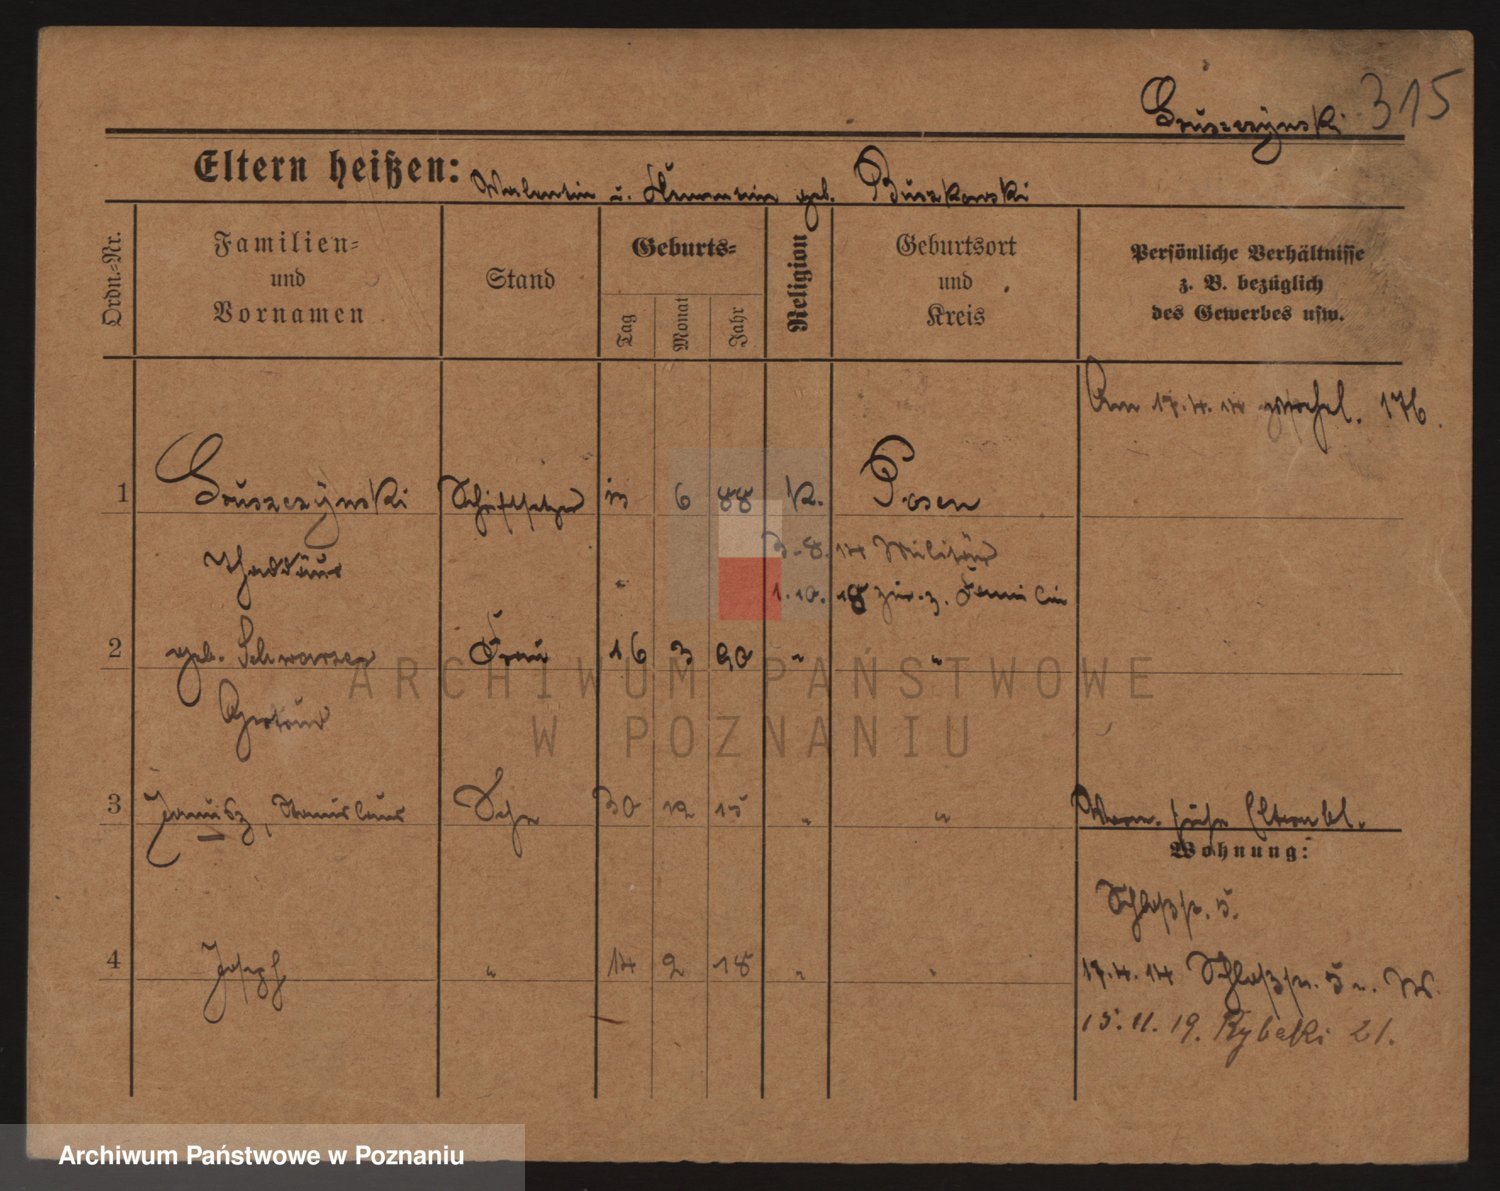 Gruszczynski 315
Eltern heißen: Valentin u. geb. Buszkowski
Ordn.=Nr.
Familien=
und
Vornamen
Stand
Geburts=
Tag
Monat
Jahr
Religion
Geburtsort
und
Kreis
Persönliche Verhältnisse
z. B. bezüglich
des Gewerbes usw.
Am 17.4.14 176.
1 Gruszczynski Schriftsetzer 6 88 K. Posen
Thaddäus
3.8.14 Militär
1.10.18 zur. z. Familie
2 geb. Schwarzer Frau 16 3 90 " "
Gertrud
3 Janusz, Stanislaus Sohn 30 12 15 " "
Vorm. siehe Elternbl.
Wohnung:
Schloßstr. 5.
4 Joseph " 14 2 18 " "
17.4.14 Schloßstr. 5 W.
15.11.19. Rybaki 21.
ARCHIWUM PAŃSTWOWE
W POZNANIU
Archiwum Państwowe w Poznaniu